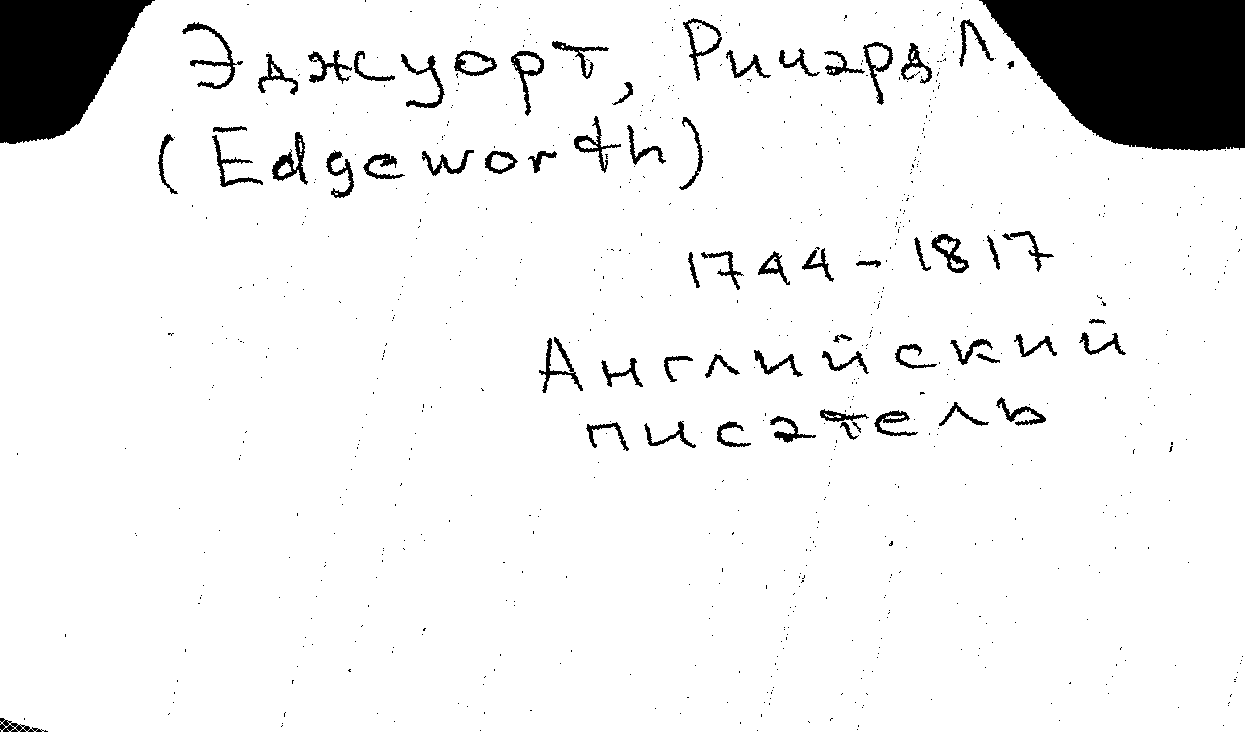 Эджуорт, Ричард Л.
(Edgeworth)
1744-1817
Английский
писатель